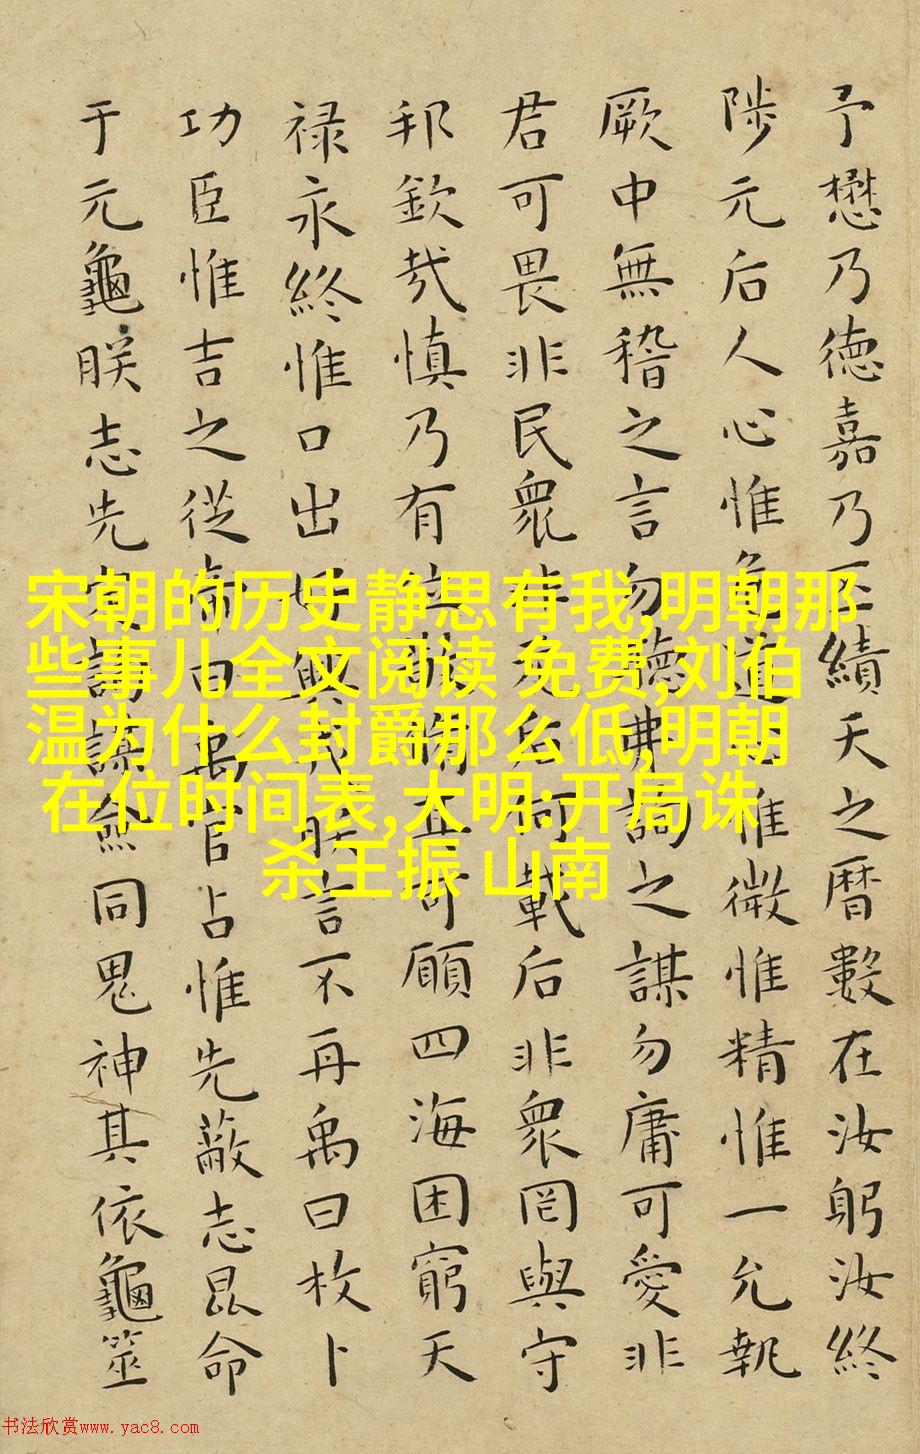 予懋乃德嘉乃丕績天之曆數在汝躬汝終
陟元后人心惟危道心惟微惟精惟一允執
厥中無稽之言勿聽弗詢之謀勿庸可愛非
君可畏非民衆非元后何載后非衆罔與守
邦欽哉慎乃有位敬脩其可願四海困窮天
禄永終惟口出好興戎朕言不再禹曰枚卜
功臣惟吉之從帝曰禹官占惟先蔽志昆命
于元龜朕志先定詢謀僉同鬼神其依龜筮
宋朝的历史静思有我,明朝那
些事儿全文阅读 免费,刘伯
温为什么封爵那么低,明朝
在位时间表,大明:开局诛
杀王振 山南
书法欣赏www.yac8.com